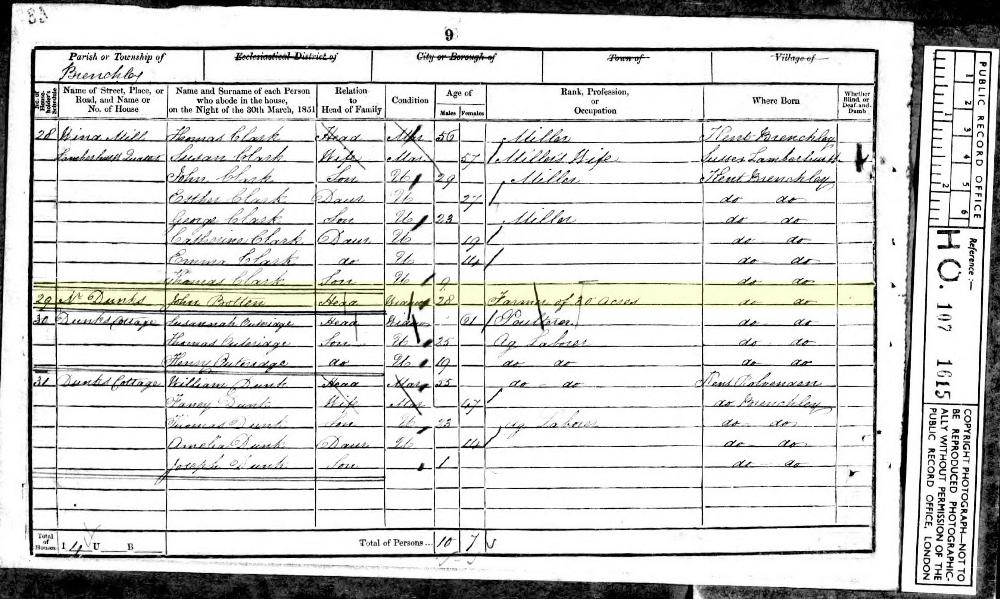 9
Parish or Township of
Ecclesiastical District of
City or Borough of
Town of
Village of
Brenchley
No. of House-holder's Schedule
Name of Street, Place, or Road, and Name or No. of House
Name and Surname of each Person who abode in the house, on the Night of the 30th March, 1851
Relation to Head of Family
Condition
Age of
Males
Females
Rank, Profession, or Occupation
Where Born
Whether Blind, or Deaf-and-Dumb
28 Wind Mill Thomas Clark Head Mar 56 Miller Kent Brenchley
Lamberhurst Susan Clark Wife Mar 57 Miller's Wife Sussex Lamberhurst
John Clark Son U 29 Miller Kent Brenchley
Esther Clark Daur U 27 do do
George Clark Son U 23 Miller do do
Catherine Clark Daur U 19 do do
Emma Clark do U 14 do do
Thomas Clark Son U 9 do do
29 Mr Dunks John Bolton Head 28 Farmer of 30 acres do do
30 Dunks Cottage Susannah Head Widow 61 do do
Thomas Son U 25 Ag Laborer do do
Henry do U 19 do do do do
31 Dunks Cottage William Dunk Head Mar 55 do do Kent Rolvenden
Dunk Wife Mar 47 do Brenchley
Thomas Dunk Son U 23 Ag Laborer do do
Amelia Dunk Daur U 14 do do
Joseph Dunk Son 1 do do
Total of Houses I 4 U B
Total of Persons... 10 7
PUBLIC RECORD OFFICE
1 2 3 4 5 6
1 2
Reference:-
HO. 107 1615
COPYRIGHT PHOTOGRAPH—NOT TO
BE REPRODUCED PHOTOGRAPHIC-
ALLY WITHOUT PERMISSION OF THE
PUBLIC RECORD OFFICE, LONDON